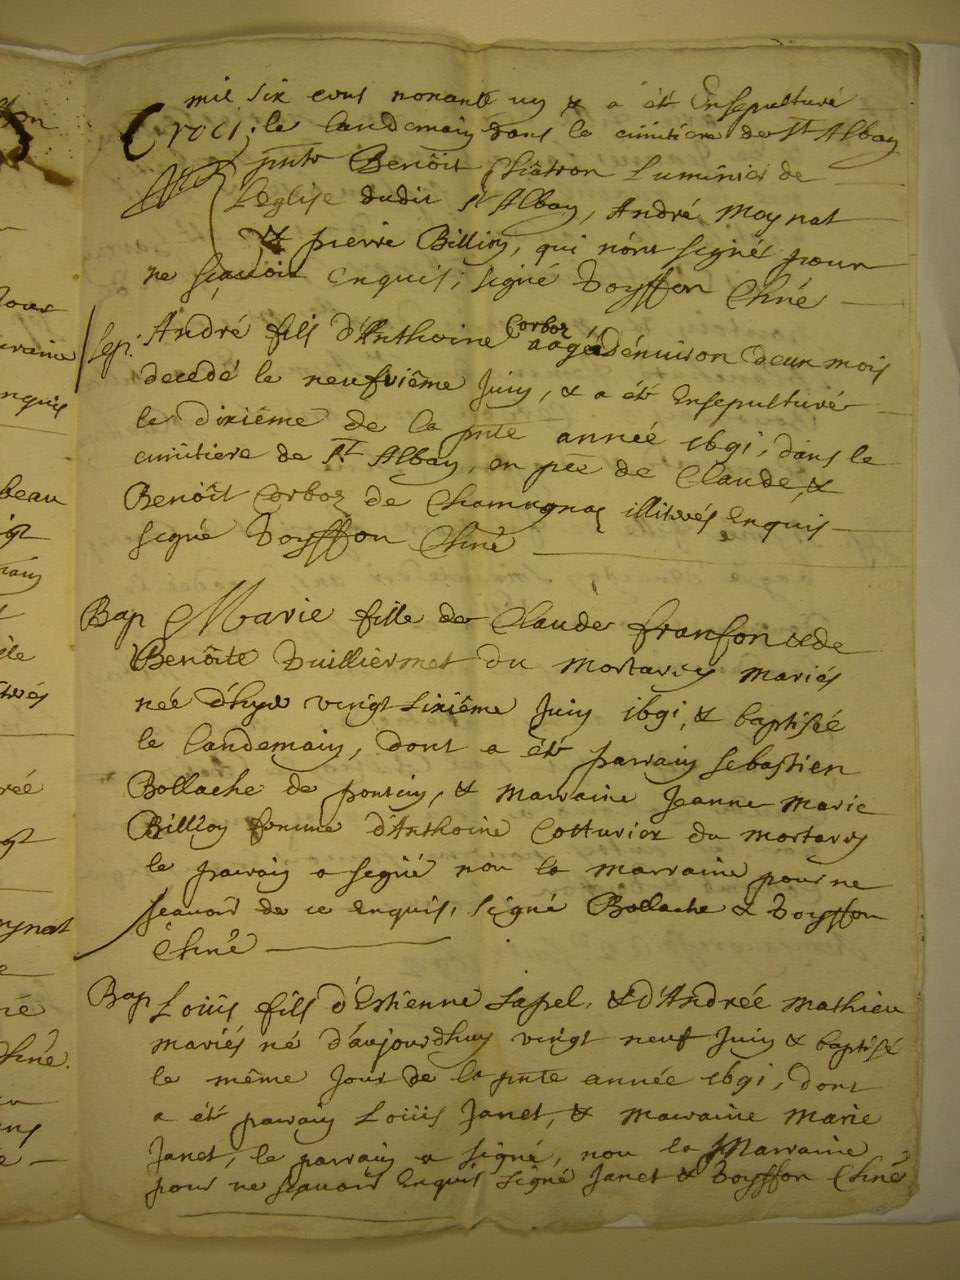 mil six cens nonante un & a été Ensepulturé
le landemain dans le cimitiere de St Alban
pnts Benôit Châtron Luminier de
L'Eglise dudit St Alban, André Moynat
& pierre Billion, qui n'ont signés pour
ne sçavoir Enquis; signé Doyffon Chné
Sep. André fils d'Anthoine Corboz aagé d'enuiron d'eun mois
decedé le neufviême Juin, & a été Ensepulturé
le dixiême de la pnte année 1691, dans le
cimitiere de St Alban, en pce de Claude, &
Benôit Corboz de Chamagnaz illiterés Enquis
signé Doyffon Chné
Bap Marie fille de Claude franson & de
Benôite Vuilliermet du mortarey mariés
née d'hyer vingt sixiême Juin 1691, & baptisée
le landemain, dont a été parrain Sebastien
Bollache de poncin, & marraine Jeanne Marie
Billion femme d'Anthoine Cotturier du mortarey
le parrain a signé non la marraine pour ne
sçavoir de ce enquis, signé Bollache & Doyffon
Chné
Bap Loüis fils d'Estienne Sapel, & d'Andrée Mathieu
mariés né d'aujourdhuy vingt neuf Juin & baptisé
le même Jour de la pnte année 1691, dont
a été parrain Loüis Janet, & marraine Marie
Janet, le parrain a signé, non la Marraine
pour ne sçavoir Enquis signé Janet & Doyffon Chné